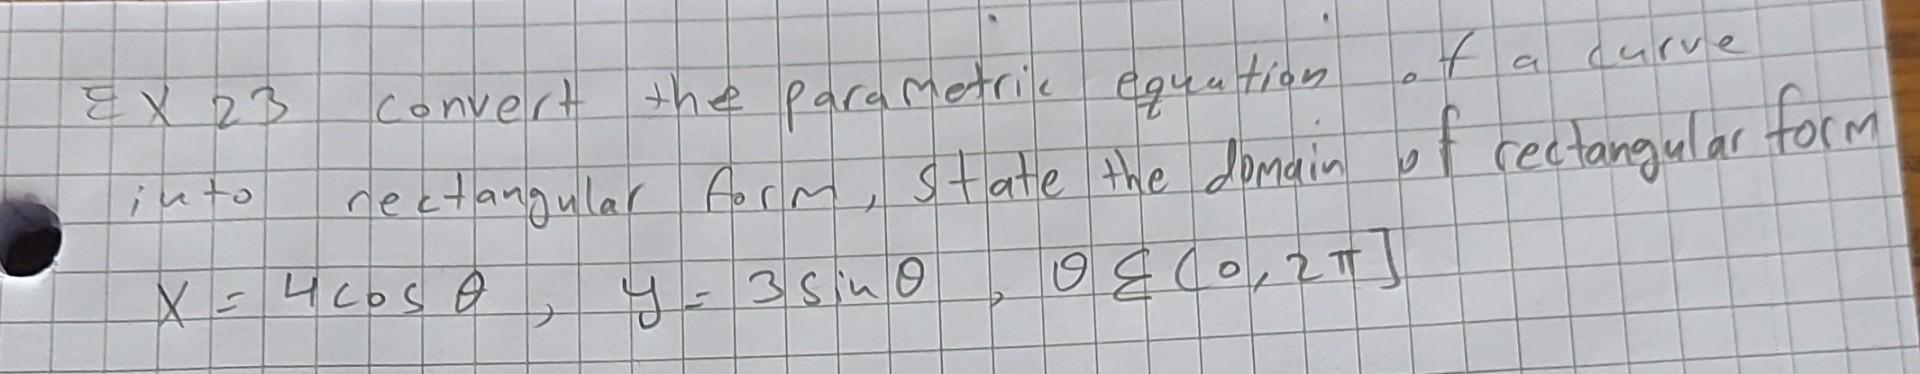 EX 23 convert the parametric equation of a curve
into rectangular form, state the domain of rectangular form
x = 4cos θ, y = 3 sin θ, θ ∈ (0, 2π]